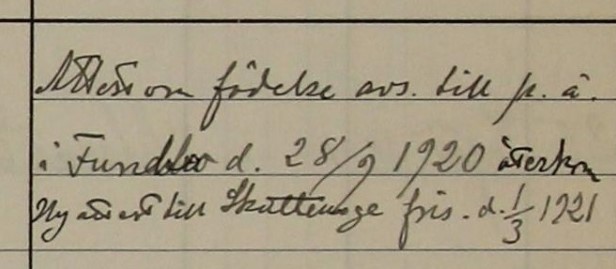 Attest om födelse avs. till p. ä.
i Fundbo d. 28/9 1920 återkom
Ny attest till Skuttunge fris. d. 1/3 1921